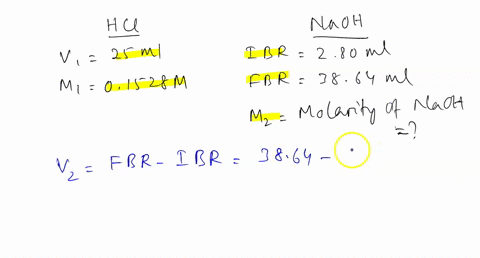 HCl
V₁ = 25 ml
M₁ = 0.1528M
NaOH
IBR = 2.80 ml
FBR = 38.64 ml
M₂ = Molarity of NaOH
= ?
V₂ = FBR - IBR = 38.64 -